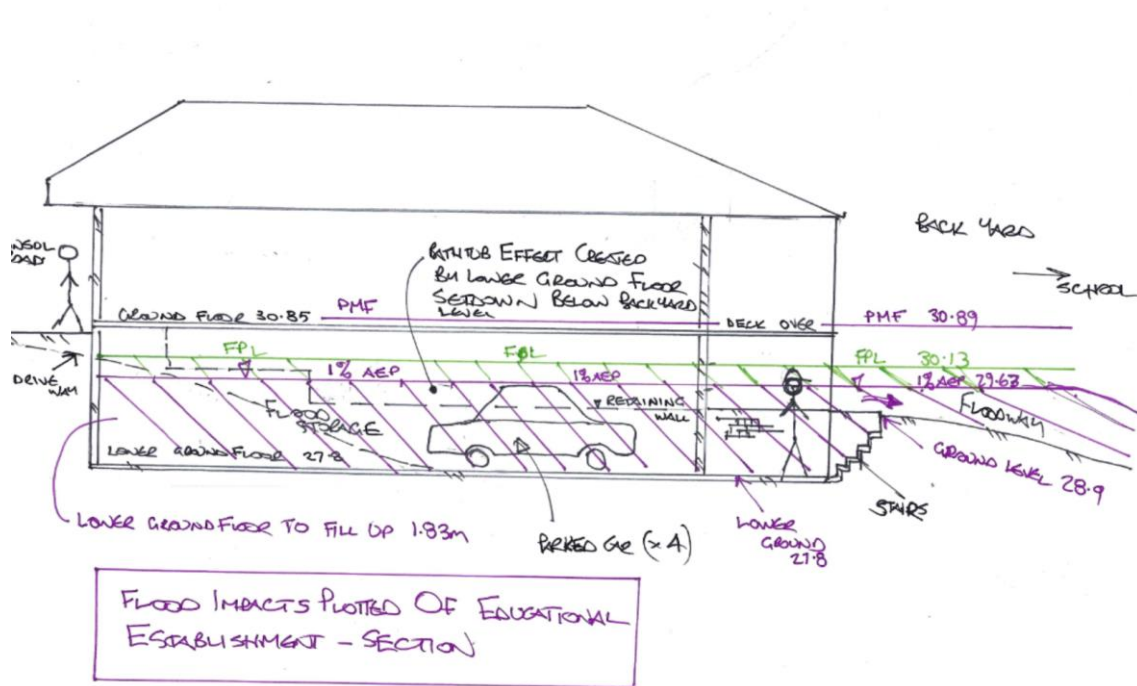 BACK YARD
SCHOOL
BATHTUB EFFECT CREATED
BY LOWER GROUND FLOOR
SETDOWN BELOW BACKYARD
LEVEL
GROUND FLOOR 30.85
PMF
DECK OVER
PMF 30.89
DRIVE
WAY
FPL
FPL
FPL 30.13
1% AEP
1% AEP
1% AEP 29.63
RETAINING
WALL
FLOOD
STORAGE
FLOODWAY
LOWER GROUND FLOOR 27.8
GROUND LEVEL 28.9
STAIRS
LOWER GROUND FLOOR TO FILL UP 1.83m
PARKED CAR (x4)
LOWER
GROUND
27.8
FLOOD IMPACTS PLOTTED OF EDUCATIONAL
ESTABLISHMENT - SECTION